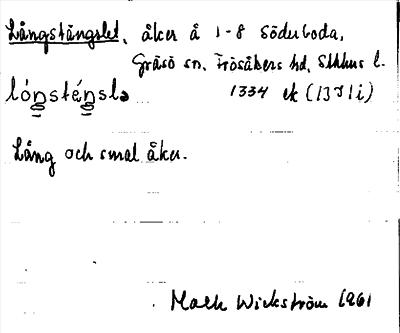 Långstängslet, åker å 1-8 Söderboda,
Gräsö sn, Frösåkers hd, Sthlms l.
lónsténslə 1334 ek (13J1i)
Lång och smal åker.
Wickström 1961